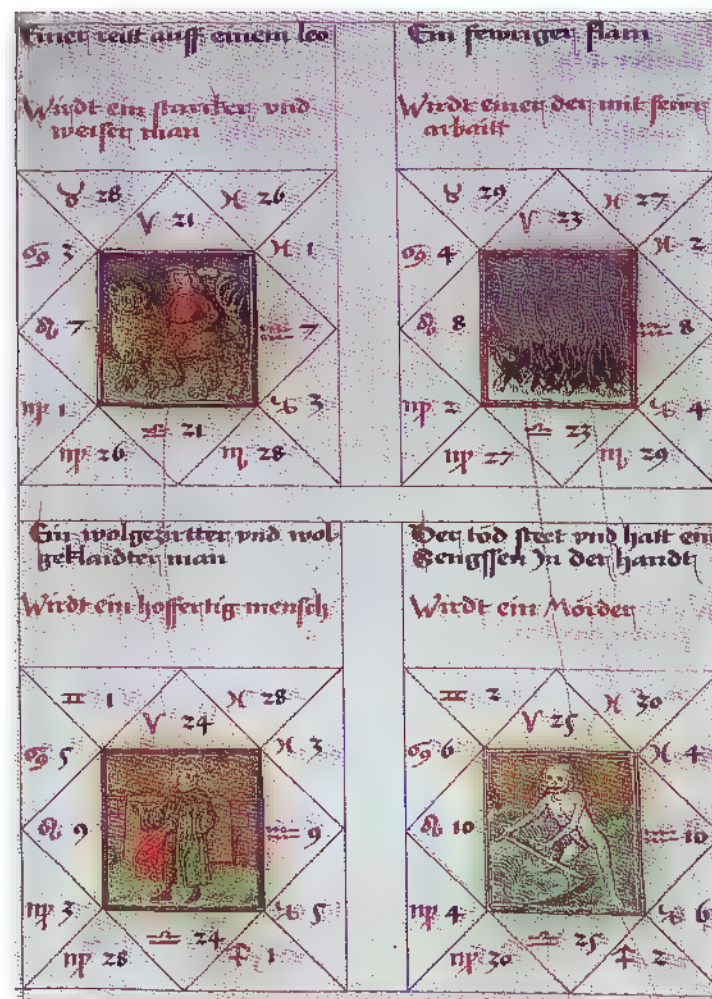 Einer reitt auff einem leo
Wirdt ein starcker vnd
weiser man
♉ 28
♓ 26
♈ 21
♋ 3
♓ 1
♌ 7
♒ 7
♍ 1
♑ 3
♎ 21
♍ 26
♏ 28
Ein fewriger flam
Wirdt einer der mit fewr
arbaitt
♉ 29
♓ 27
♈ 23
♋ 4
♓ 2
♌ 8
♒ 8
♍ 2
♑ 4
♎ 23
♍ 27
♏ 29
Ein wolgezirtter vnd wol
geklaidter man
Wirdt ein hoffertig mensch
♊ 1
♓ 28
♈ 24
♋ 5
♓ 3
♌ 9
♒ 9
♍ 3
♑ 5
♎ 24
♍ 28
♐ 1
Der tod steet vnd hatt ein
Sengssen In der handt
Wirdt ein Mörder
♊ 2
♓ 30
♈ 25
♋ 6
♓ 4
♌ 10
♒ 10
♍ 4
♑ 6
♎ 25
♍ 30
♐ 2